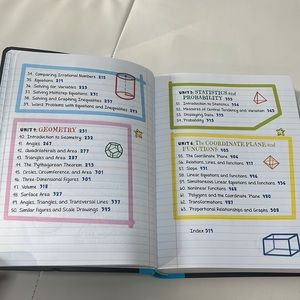 34. Comparing Irrational Numbers 213
35. Equations 219
36. Solving for Variables 225
37. Solving Multistep Equations 231
38. Solving and Graphing Inequalities
39. Word Problems with Equations and Inequalities
UNIT 4: GEOMETRY 251
40. Introduction to Geometry 252
41. Angles 267
42. Quadrilaterals and Area 277
43. Triangles and Area 287
44. The Pythagorean Theorem 295
45. Circles, Circumference, and Area 301
46. Three-Dimensional Figures 309
47. Volume 318
48. Surface Area 327
49. Angles, Triangles, and Transversal Lines 337
50. Similar Figures and Scale Drawings 345
UNIT 5: STATISTICS and
PROBABILITY 355
51. Introduction to Statistics 356
52. Measures of Central Tendency and Variation 365
53. Displaying Data
54. Probability 395
UNIT 6: The COORDINATE PLANE and
FUNCTIONS 405
55. The Coordinate Plane 406
56. Relations, Lines, and Functions
57. Slope 431
58. Linear Equations and Functions
59. Simultaneous Linear Equations and Functions 456
60. Nonlinear Functions
61. Polygons and the Coordinate Plane 480
62. Transformations 487
63. Proportional Relationships and Graphs 508
Index 519